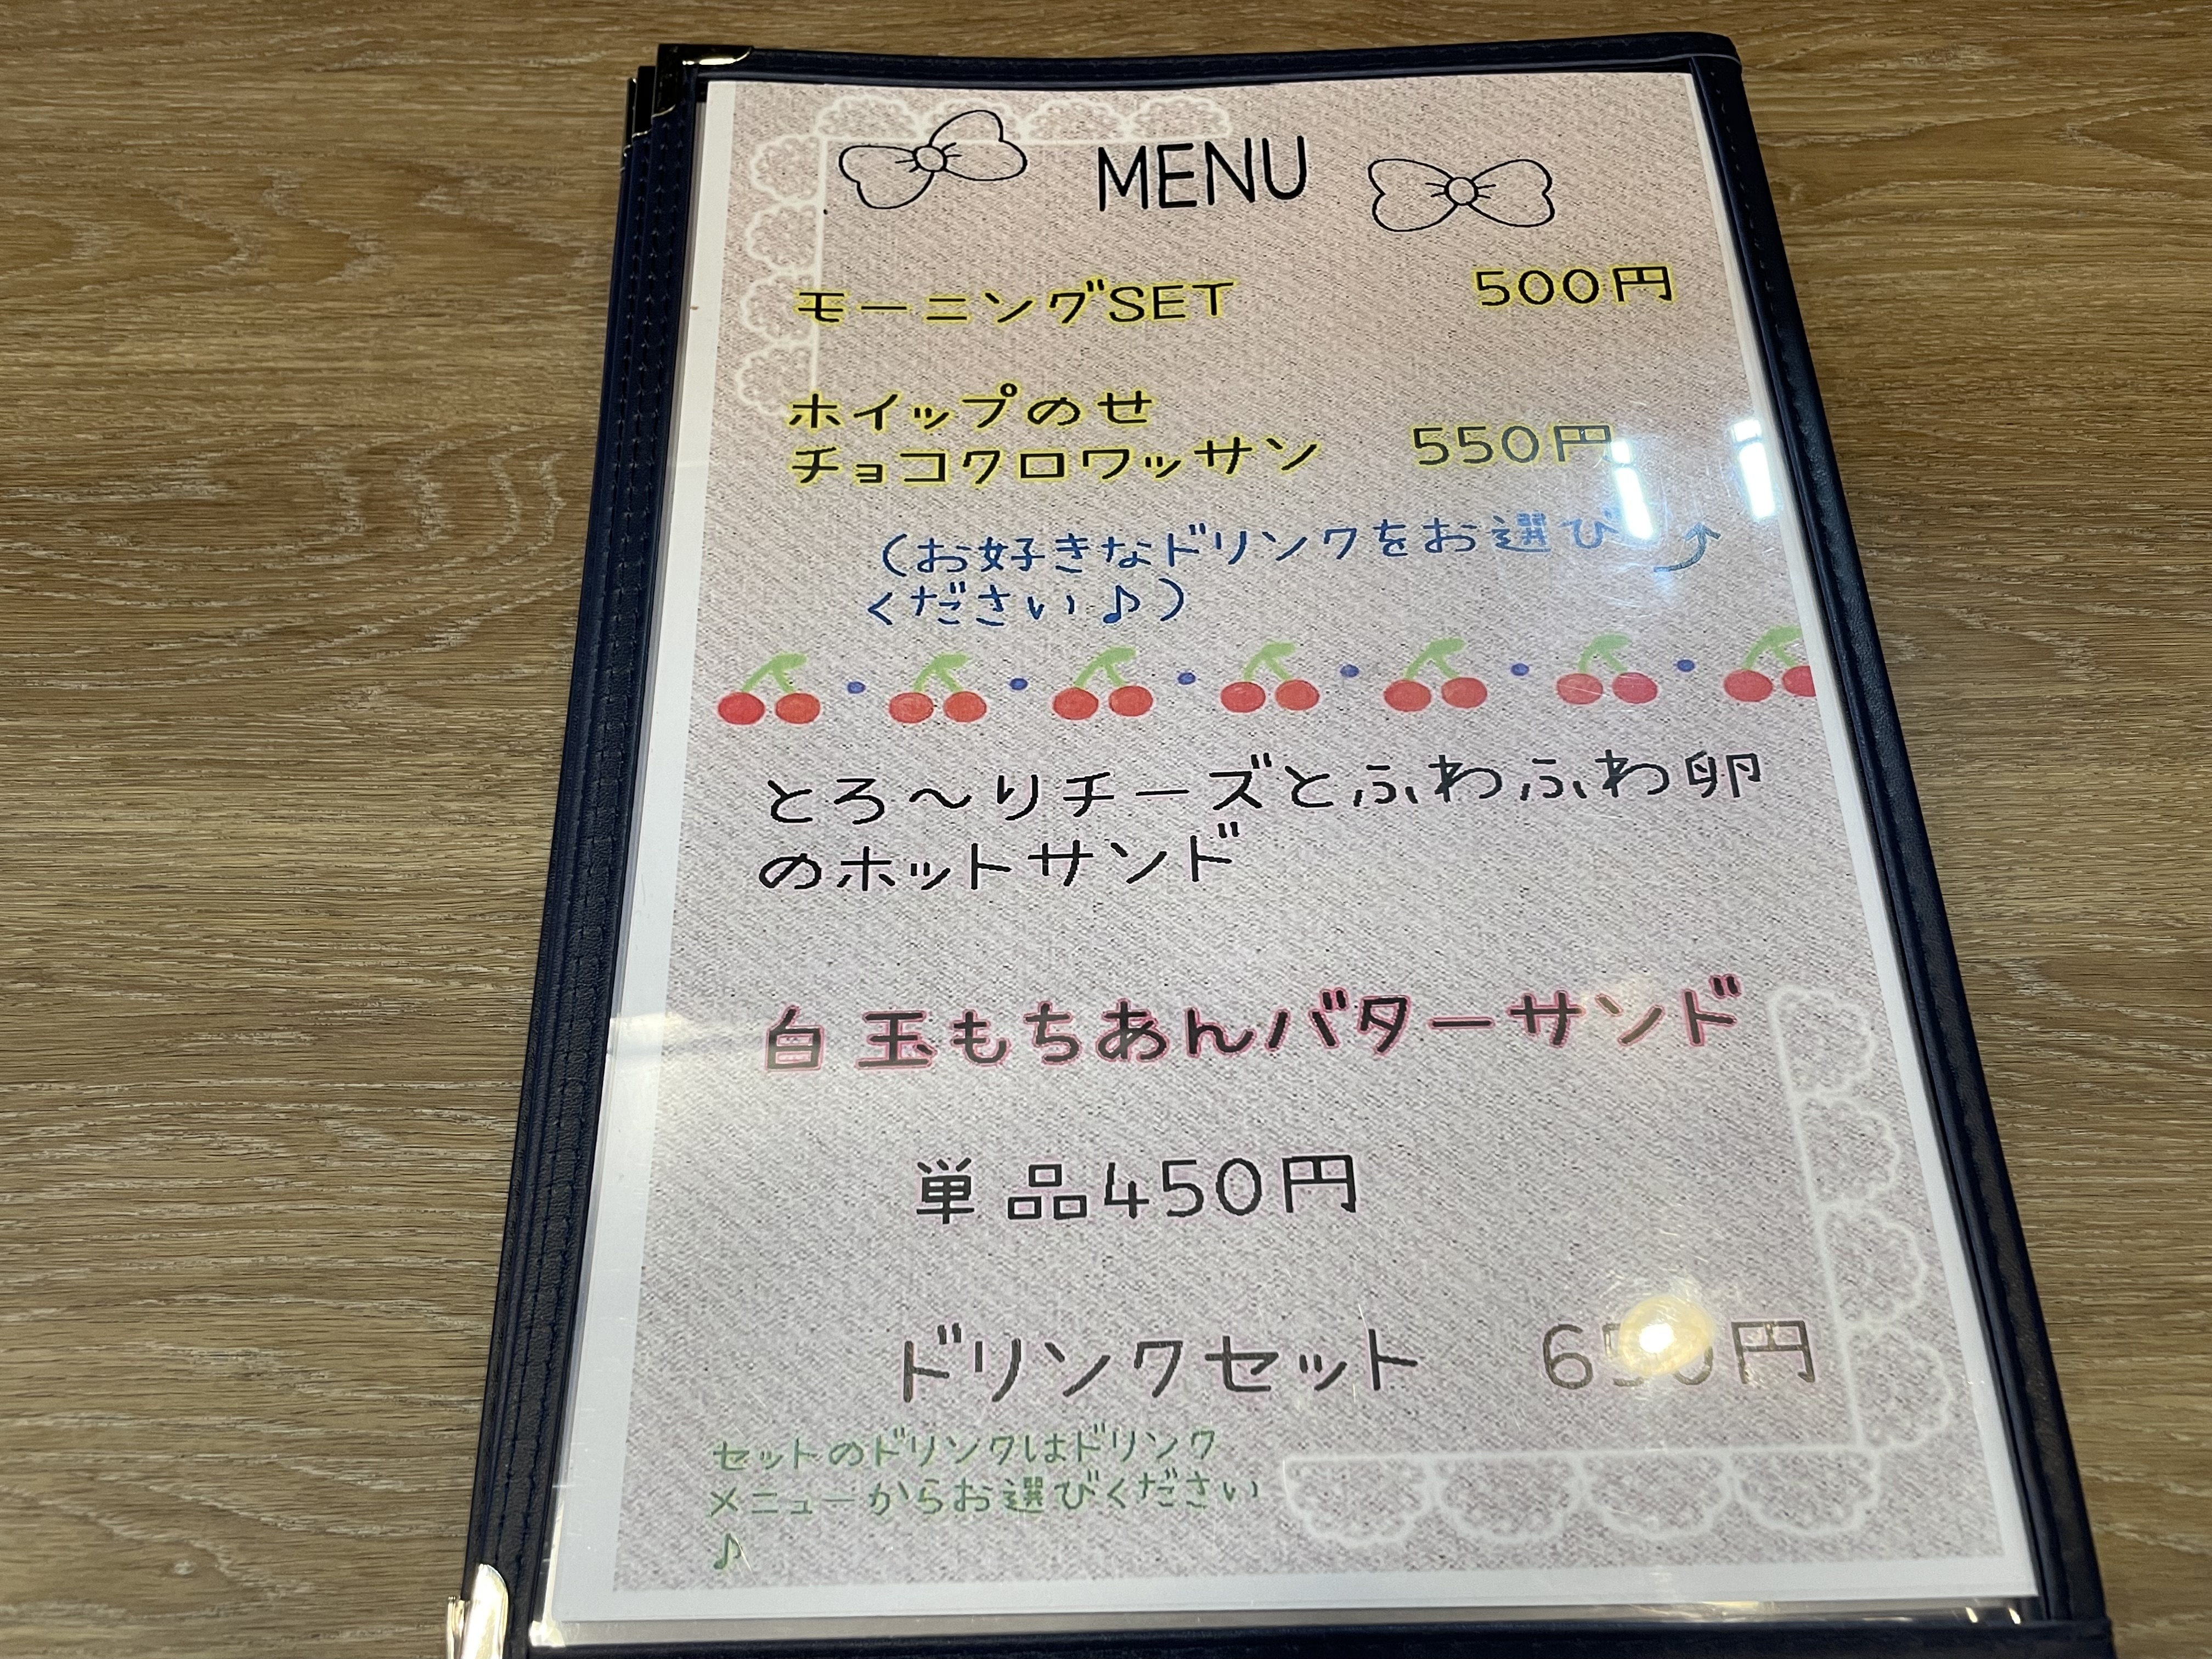 MENU
モーニングSET 500円
ホイップのせ
チョコクロワッサン 550円
(お好きなドリンクをお選び
ください♪)
とろ～りチーズとふわふわ卵
のホットサンド
白玉もちあんバターサンド
単品450円
ドリンクセット 650円
セットのドリンクはドリンク
メニューからお選びください
♪